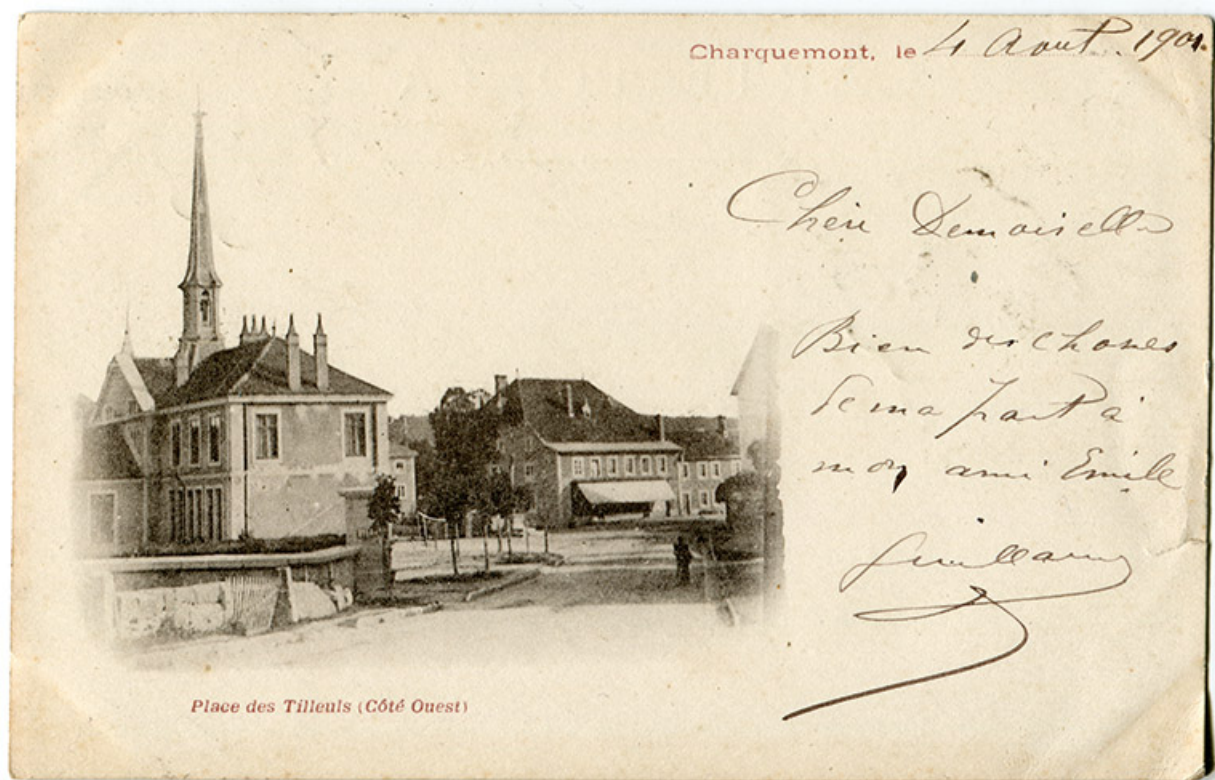 Charquemont, le 4 Aout. 1901.
Chère Demoiselle
Bien des choses
de ma part à
mon ami Emile
Guillaume
Place des Tilleuls (Côté Ouest)